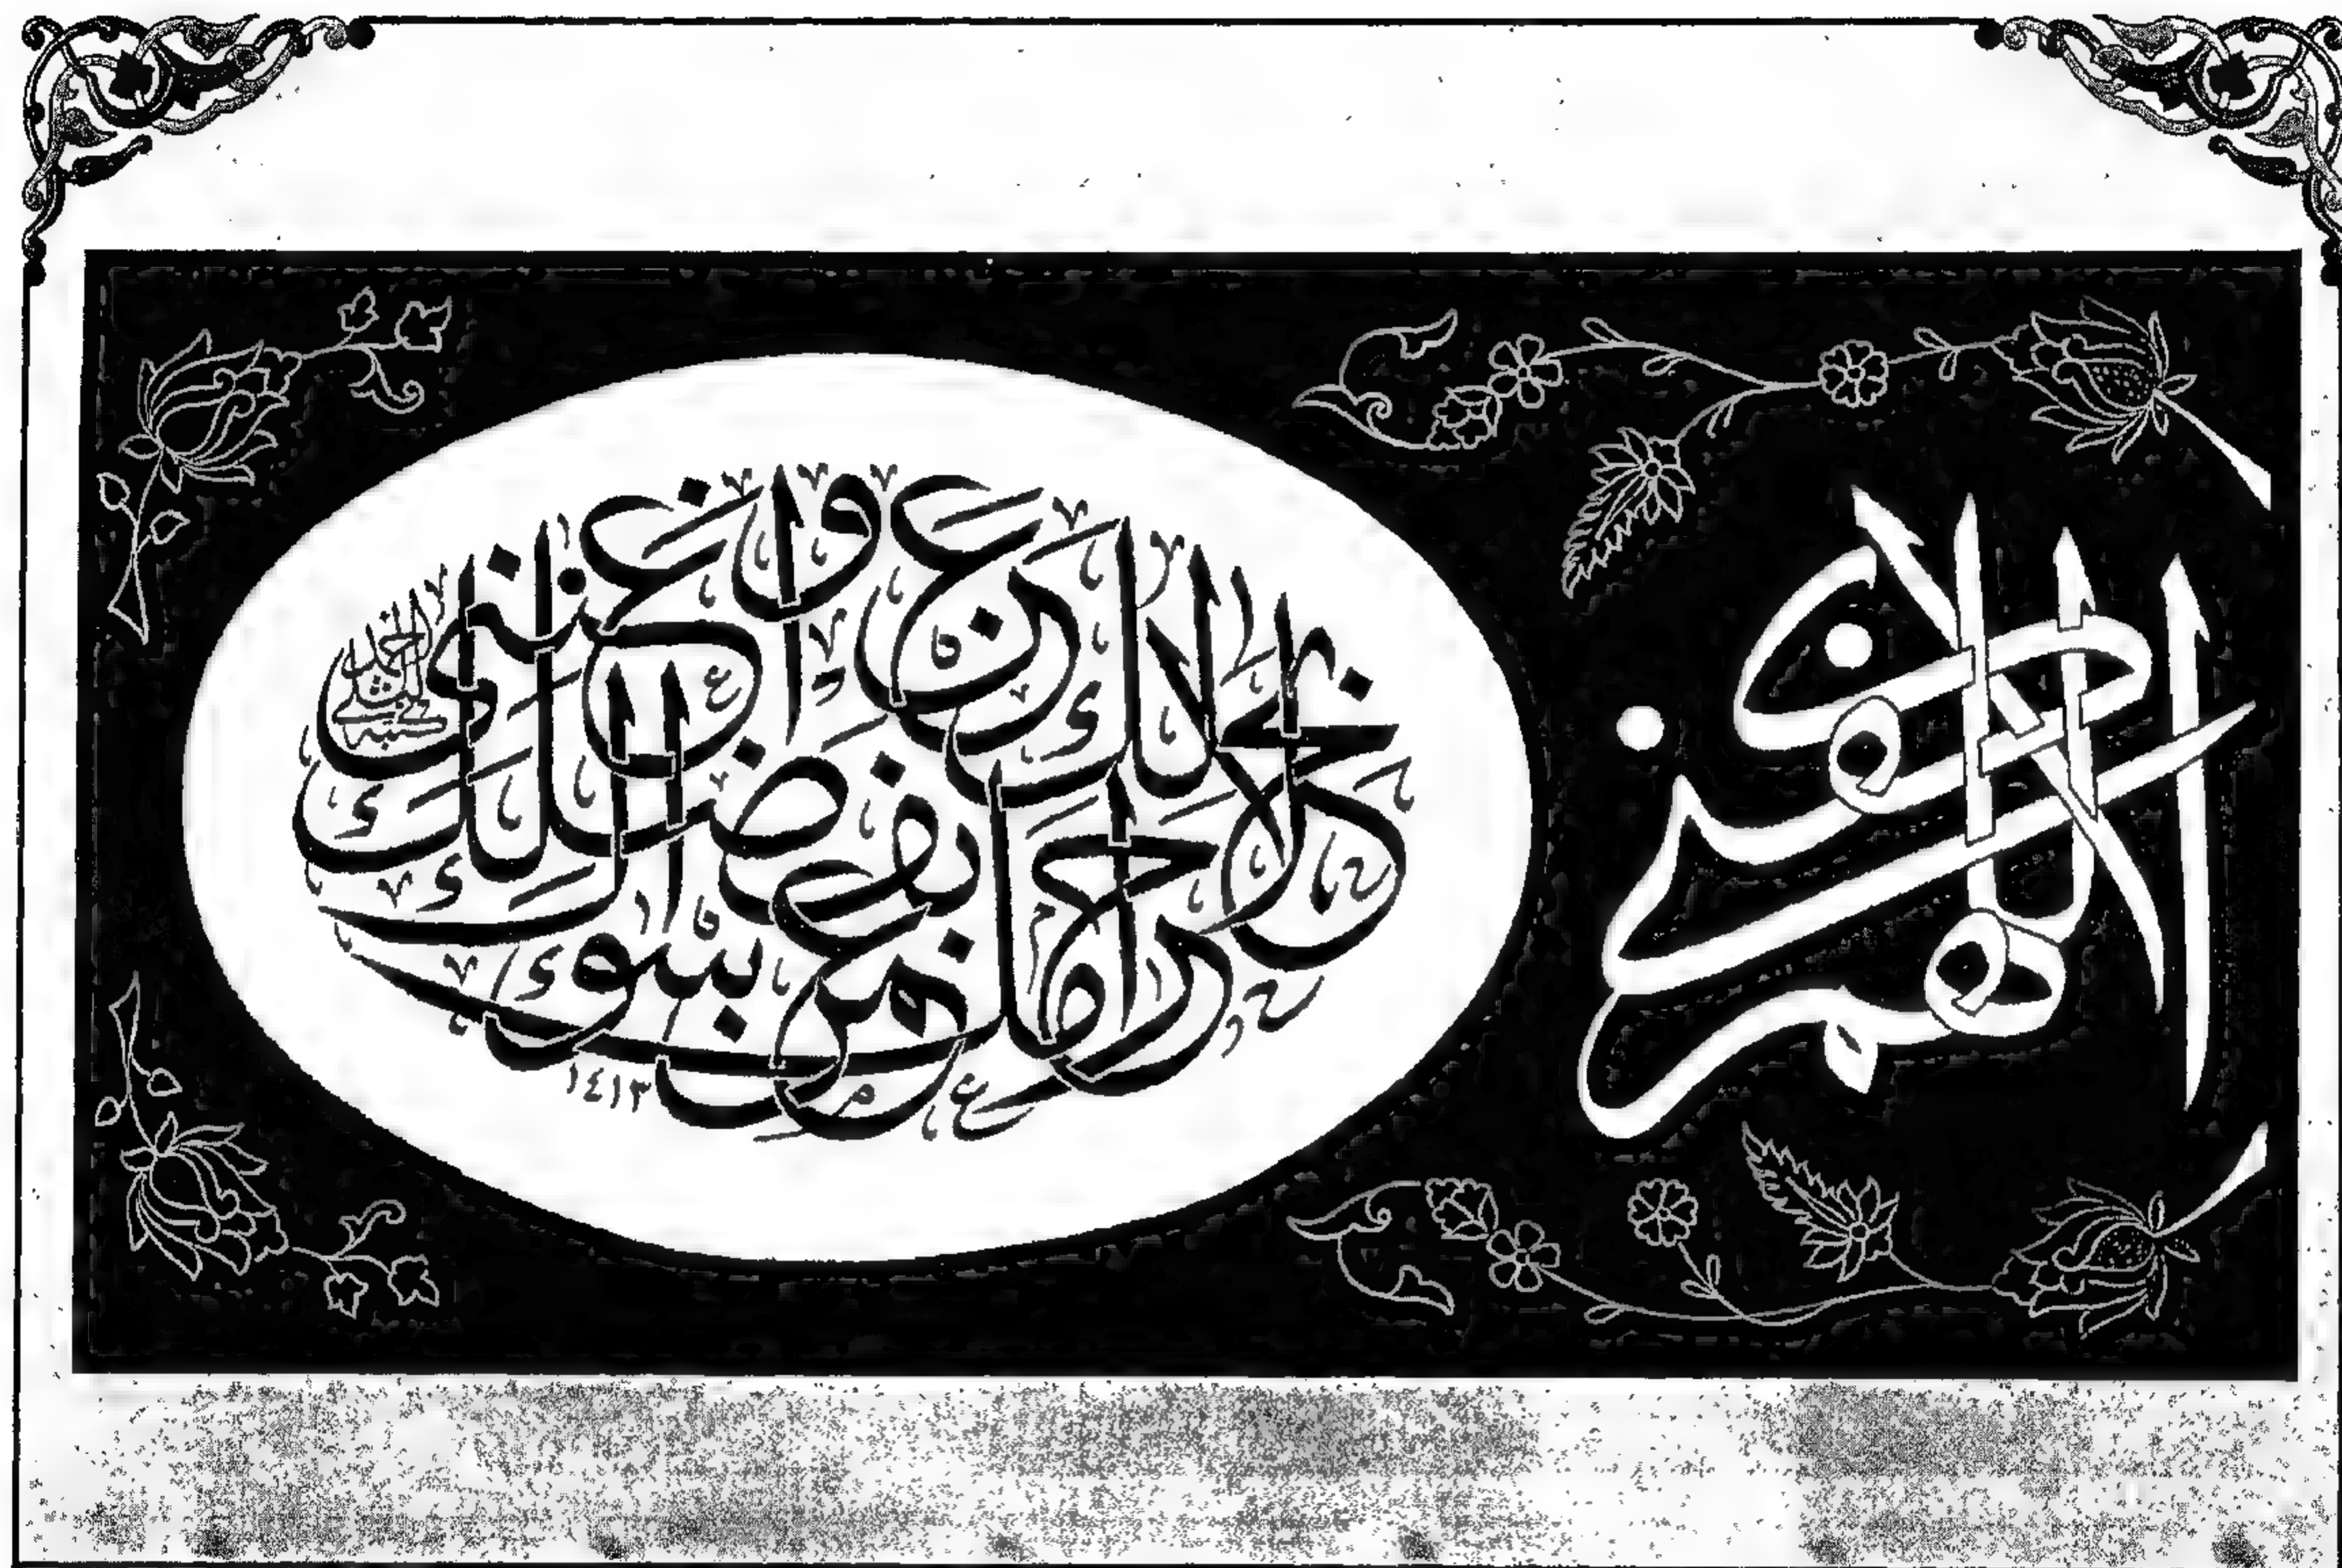 اللهم اكفني
بحلالك عن حرامك
واغنني بفضلك
عمن سواك
١٤١٣